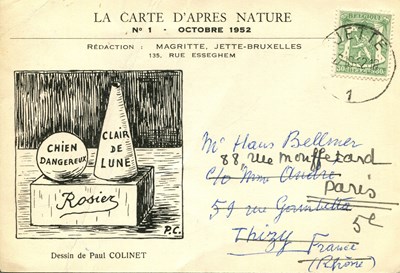 LA CARTE D'APRES NATURE
N° 1 - OCTOBRE 1952
RÉDACTION : MAGRITTE, JETTE-BRUXELLES
135, RUE ESSEGHEM
BELGIQUE
JETTE
1
CHIEN
DANGEREUX
CLAIR
DE
LUNE
Rosier
P.C.
Dessin de Paul COLINET
Mr Hans Bellmer
88 rue Mouffetard
c/o Mme André
Paris
51 rue Gambetta
5e
Thizy France
(Rhône)